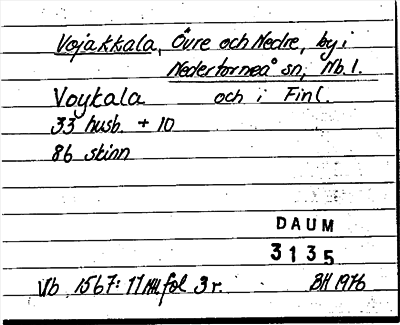 Vojakkala, Övre och Nedre, by i
Nedertorneå sn, Nb. l.
Voykala och i Finl.
33 husb. + 10
86 skinn
DAUM
3135
Vb 1567: 17 fol 3 r. BH 1976